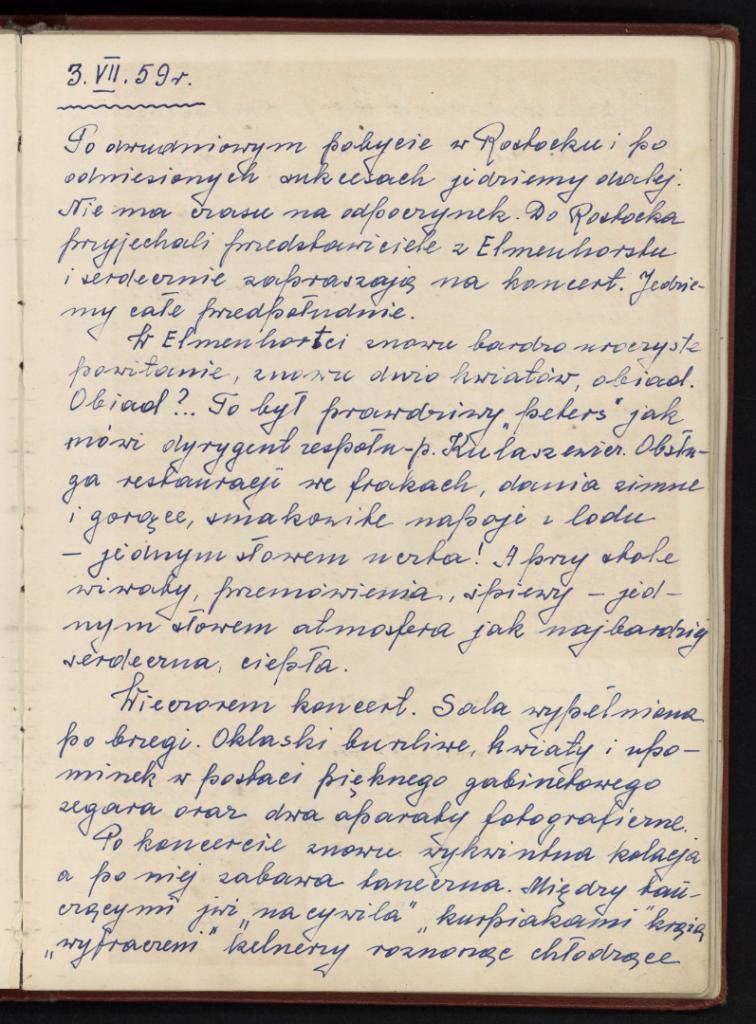 3.VII.59r.
Po dwudniowym pobycie w Rostocku i po
odniesionych sukcesach jedziemy dalej.
Nie ma czasu na odpoczynek. Do Rostocka
przyjechali przedstawiciele z Elmenhorstu
i serdecznie zapraszają na koncert. Jedzie-
my całe przedpołudnie.
W Elmenhorści znowu bardzo uroczyste
powitanie, znowu dużo kwiatów, obiad.
Obiad?.. To był prawdziwy „peters" jak
mówi dyrygent zespołu - p. Kulaszewicz. Obsłu-
ga restauracji we frakach, dania zimne
i gorące, smakowite napoje z lodu
- jednym słowem uczta! A przy stole
wiwaty, przemówienia, śpiewy - jed-
nym słowem atmosfera jak najbardziej
serdeczna, ciepła.
Wieczorem koncert. Sala wypełniona
po brzegi. Oklaski burzliwe, kwiaty i upo-
minek w postaci pięknego gabinetowego
zegara oraz dwa aparaty fotograficzne.
Po koncercie znowu wykwintna kolacja
a po niej zabawa taneczna. Między tań-
czącymi już „na cywila" „kurpiakami" krążą
„wyfraczeni" kelnerzy roznosząc chłodzące